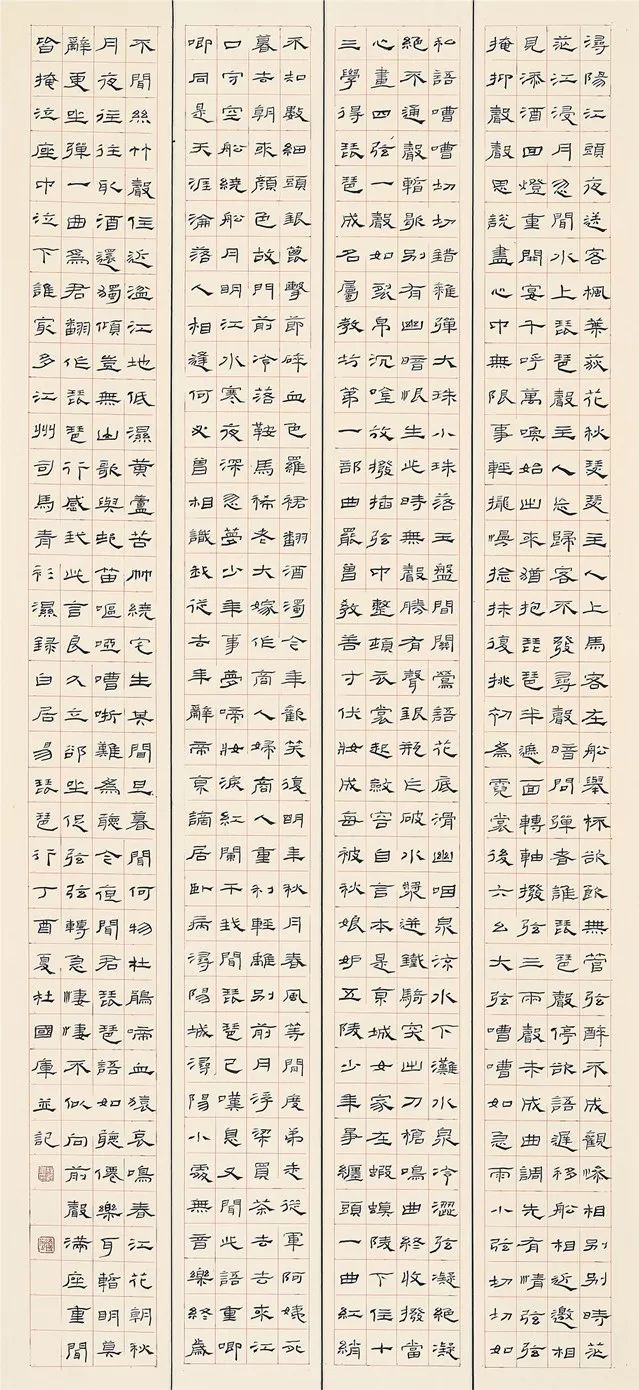 潯陽江頭夜送客楓葉荻花秋瑟瑟主人上馬客在船舉杯欲飲無管弦醉不成觀慘相別別時茫
茫江浸月忽聞水上琵琶聲主人忘歸客不發尋聲暗問彈者誰琵琶聲停欲語遲移船相近邀相
見添酒回燈重開宴千呼萬喚始出來猶抱琵琶半遮面轉軸撥弦三兩聲未成曲調先有情弦弦
掩抑聲聲思說盡心中無限事輕攏慢捻抹復挑初為霓裳後六幺大弦嘈嘈如急雨小弦切切如
私語嘈嘈切切錯雜彈大珠小珠落玉盤間關鶯語花底滑幽咽泉流水下灘水泉冷澀弦凝絕凝
絕不通聲暫歇別有幽暗恨生此時無聲勝有聲銀瓶乍破水漿迸鐵騎突出刀槍鳴曲終收撥當
心畫四弦一聲如裂帛沉吟放撥插弦中整頓衣裳起斂容自言本是京城女家在蝦蟆陵下住十
三學得琵琶成名屬教坊第一部曲罷曾教善才伏妝成每被秋娘妒五陵少年爭纏頭一曲紅綃
不知數鈿頭銀篦擊節碎血色羅裙翻酒濁今年歡笑復明年秋月春風等閒度弟走從軍阿姨死
暮去朝來顏色故門前冷落鞍馬稀老大嫁作商人婦商人重利輕離別前月浮梁買茶去去來江
口守空船繞船月明江水寒夜深忽夢少年事夢啼妝淚紅闌干我聞琵琶已嘆息又聞此語重唧
唧同是天涯淪落人相逢何必曾相識我從去年辭帝京謫居臥病潯陽城潯陽小處無音樂終歲
不聞絲竹聲住近湓江地低濕黃蘆苦竹繞宅生其間旦暮聞何物杜鵑啼血猿哀鳴春江花朝秋
月夜往往取酒還獨傾豈無山歌與村笛嘔啞嘈哳難為聽今夜聞君琵琶語如聽仙樂耳暫明莫
辭更坐彈一曲為君翻作琵琶行感我此言良久立卻坐促弦弦轉急淒淒不似向前聲滿座重聞
皆掩泣座中泣下誰最多江州司馬青衫濕錄白居易琵琶行丁酉夏杜國庫並記